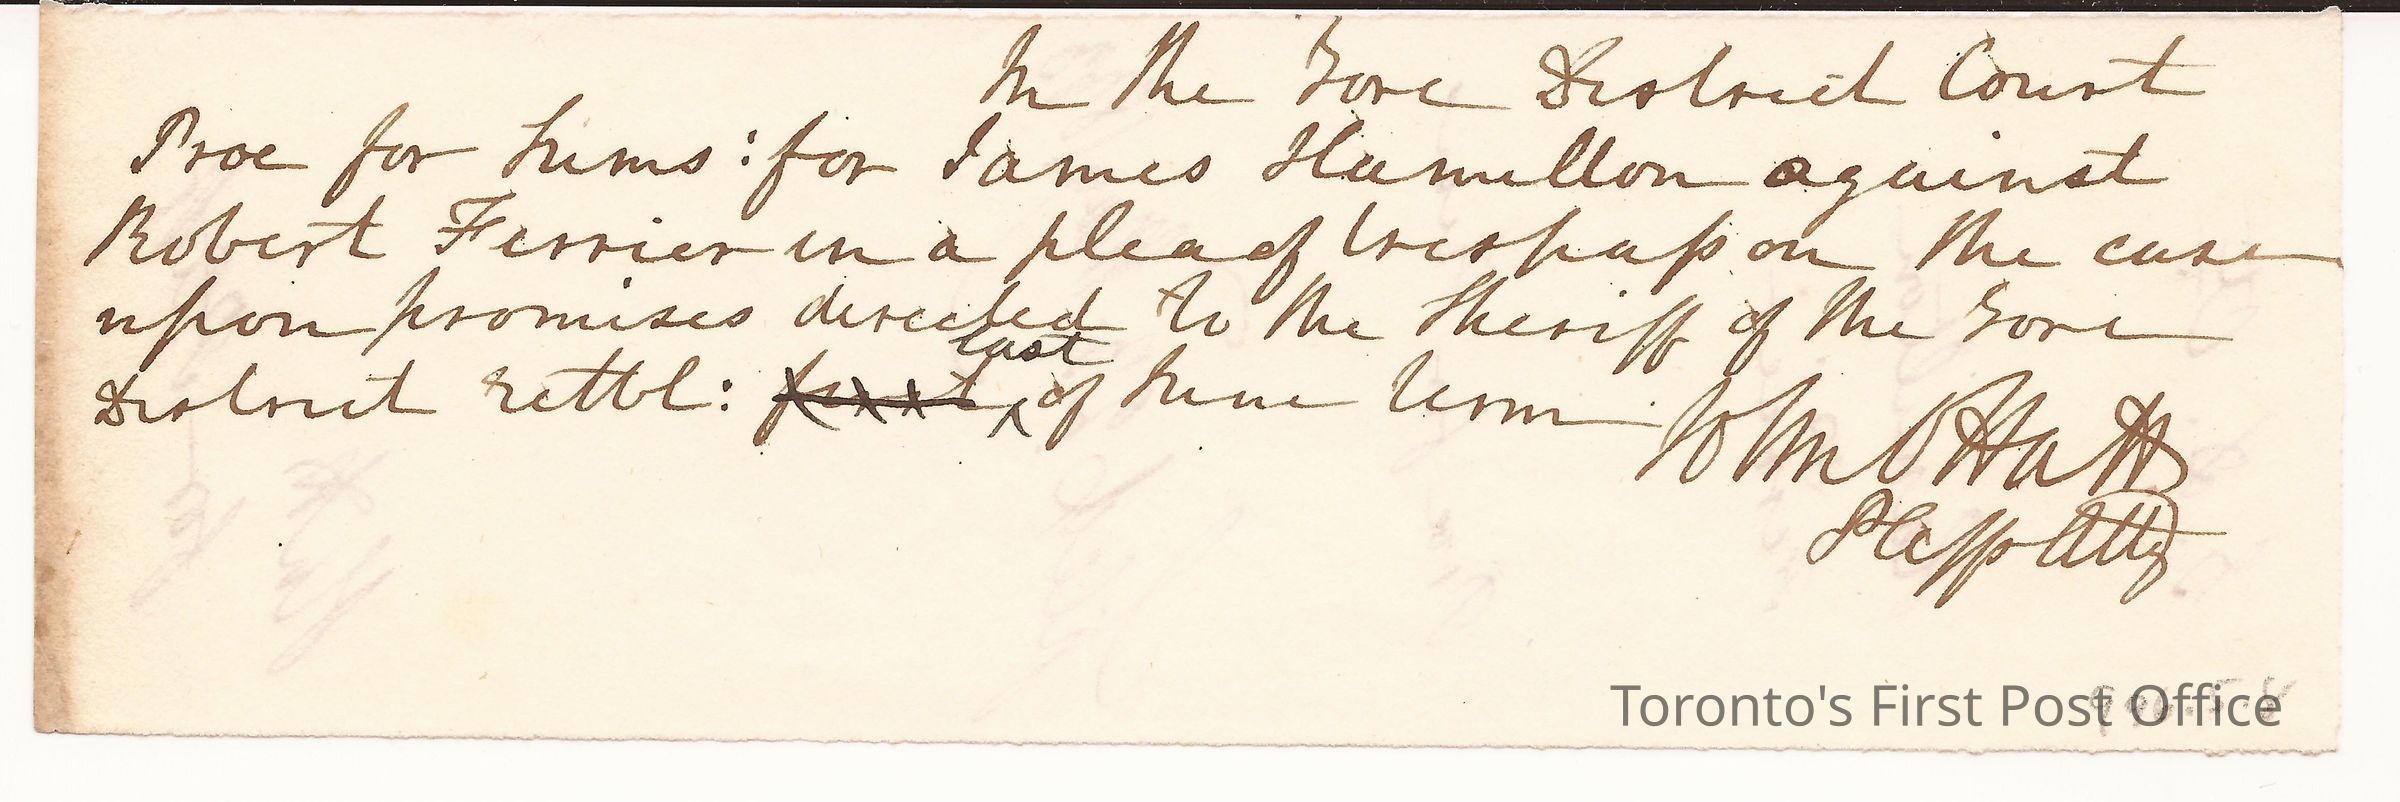 In the Gore District Court
Proe for Sums: for James Hamilton against
Robert Ferrier in a plea of trespass on the case
upon promises directed to the Sheriff of the Gore
last
District retbl: of June term
John O Hatt
Plffs Atty
Toronto's First Post Office